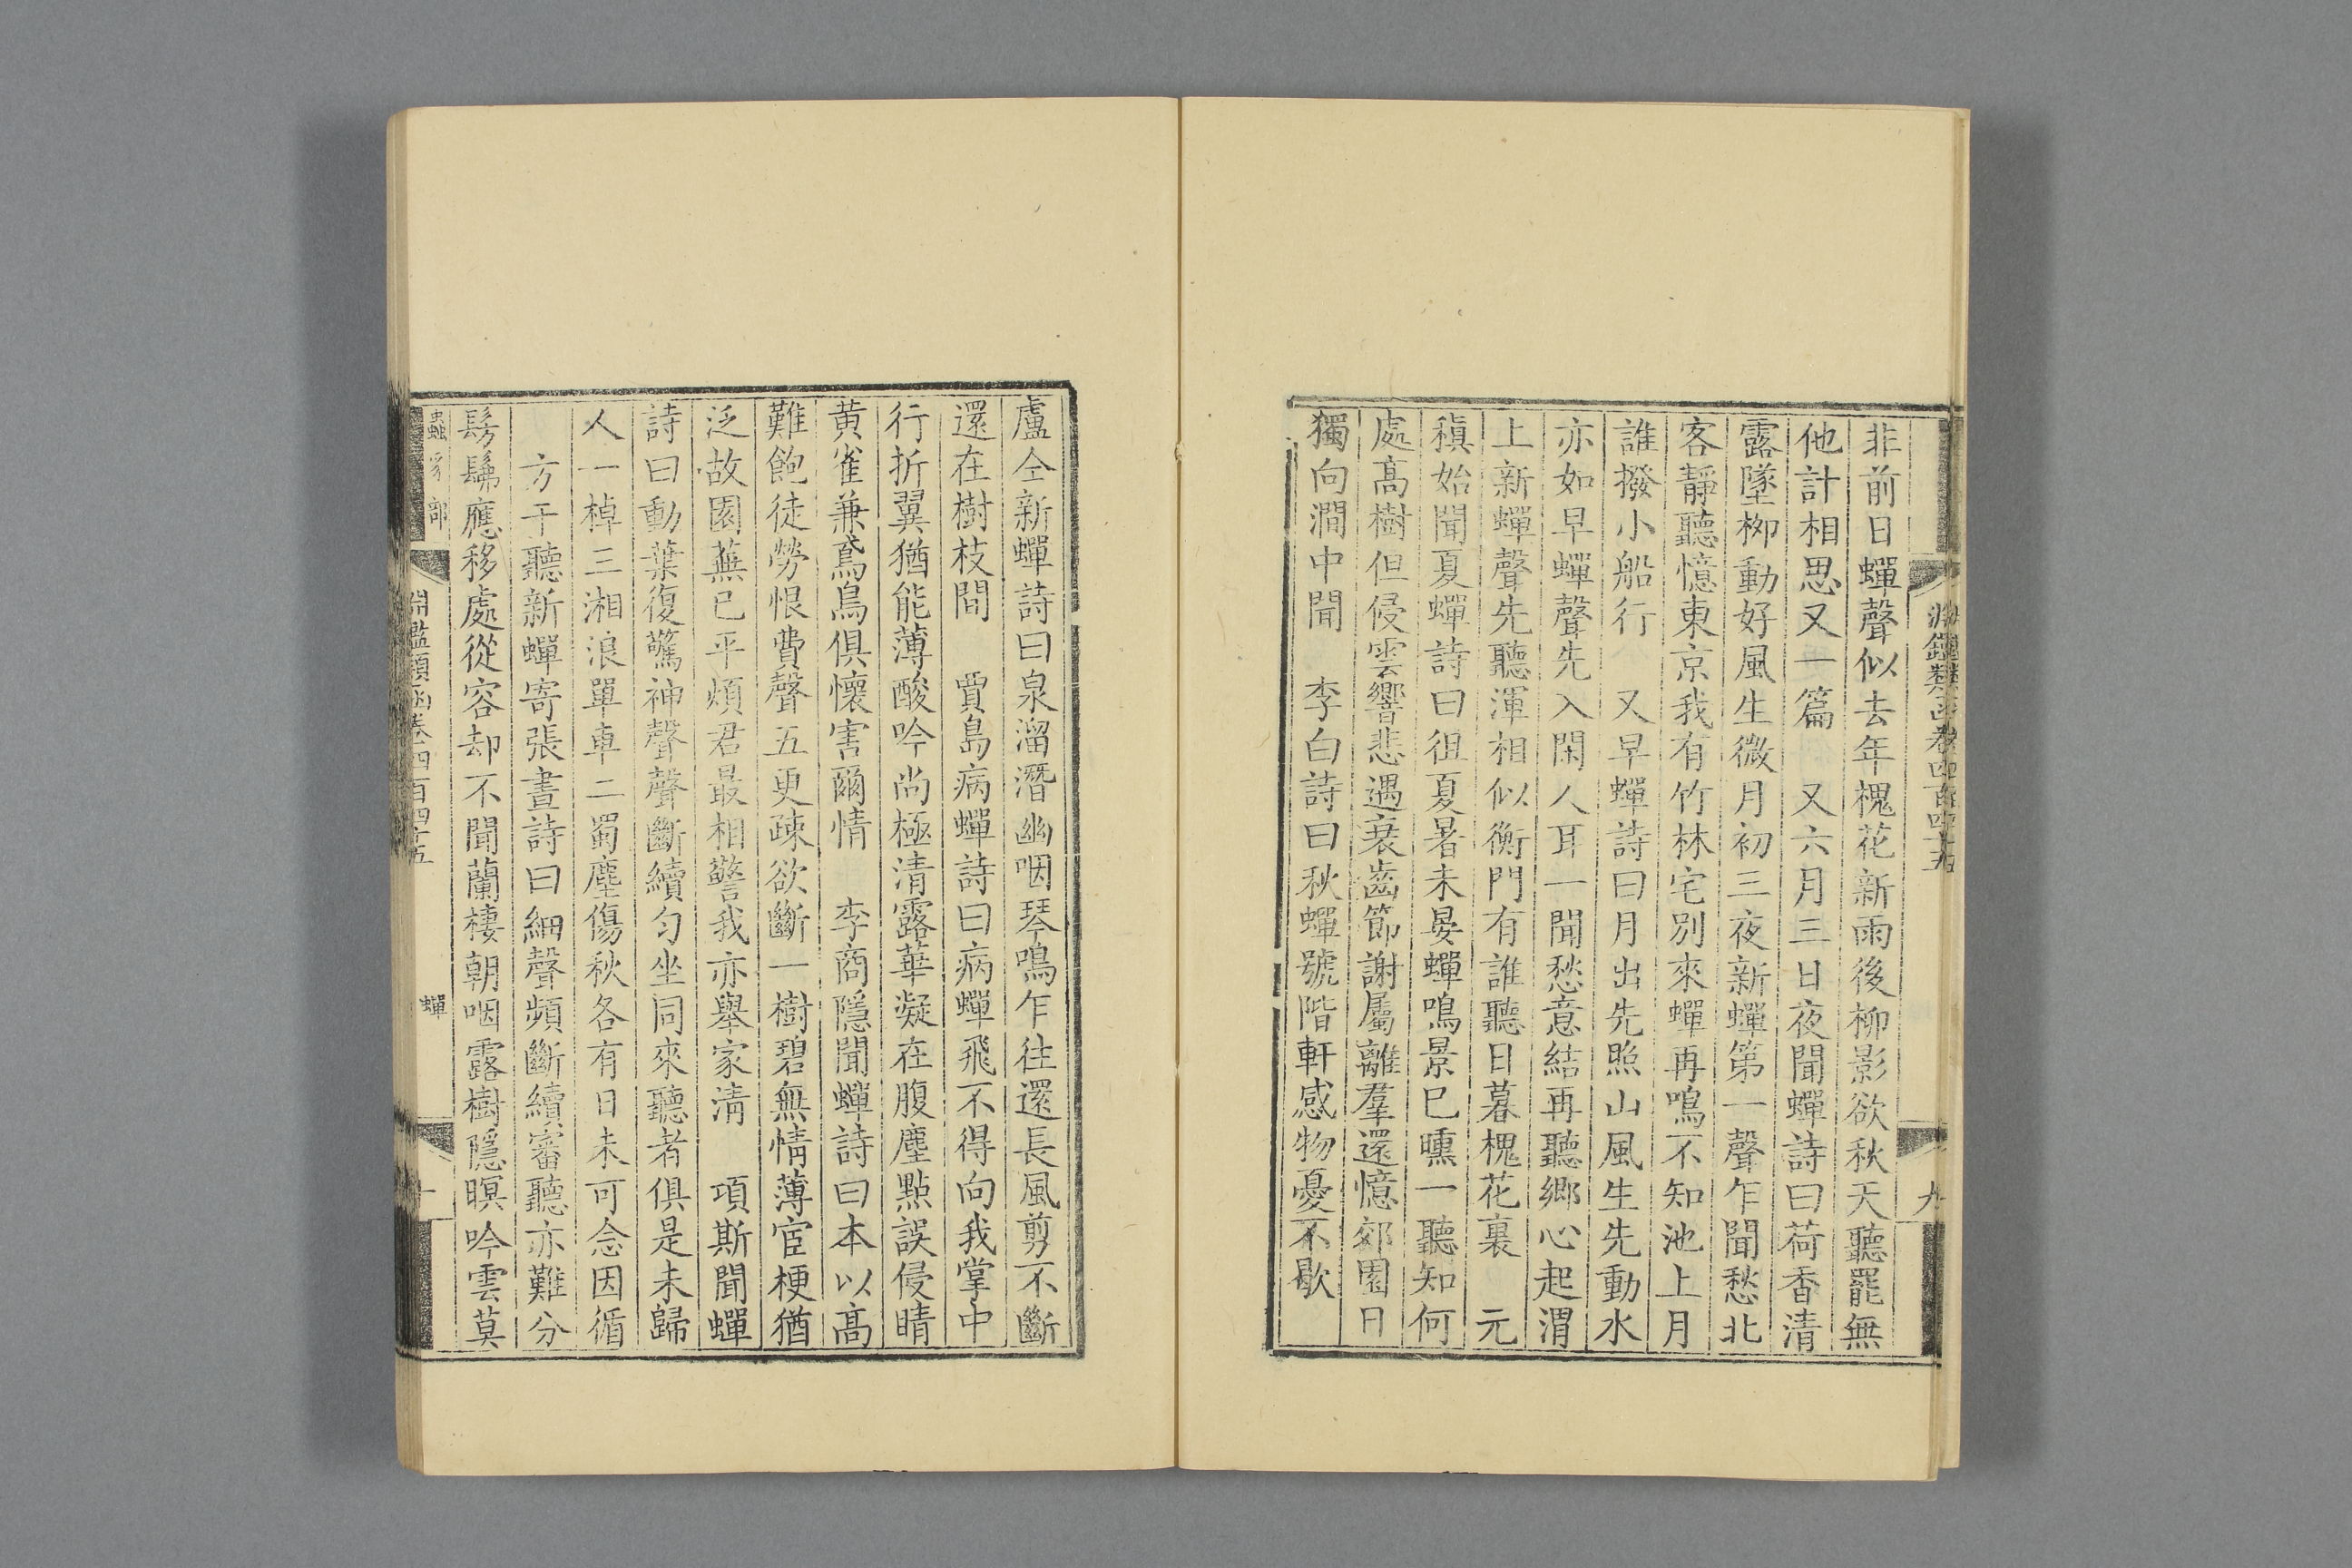 淵鑑類函卷四百四十五
九
非前日蟬聲似去年槐花新雨後柳影欲秋天聽罷無
他計相思又一篇　又六月三日夜聞蟬詩曰荷香清
露墜栁動好風生微月初三夜新蟬第一聲乍聞愁北
客靜聽憶東京我有竹林宅別來蟬再鳴不知池上月
誰撥小船行　又早蟬詩曰月出先照山風生先動水
亦如早蟬聲先入閑人耳一聞愁意結再聽鄉心起渭
上新蟬聲先聽渾相似衡門有誰聽日暮槐花裏　元
稹始聞夏蟬詩曰徂夏暑未晏蟬鳴景巳曛一聽知何
處髙樹但侵雲響悲遇衰齒節謝屬離羣還憶郊園日
獨向澗中聞　李白詩曰秋蟬號階軒感物憂不歇
盧仝新蟬詩曰泉溜潛幽咽琴鳴乍往還長風剪不斷
還在樹枝間　賈島病蟬詩曰病蟬飛不得向我掌中
行折翼猶能薄酸吟尚極清露華凝在腹塵點誤侵睛
黄雀兼鳶鳥俱懷害爾情　李商隱聞蟬詩曰本以髙
難飽徒勞恨費聲五更疎欲斷一樹碧無情薄宦梗猶
泛故園蕪已平煩君最相警我亦舉家清　項斯聞蟬
詩曰動葉復驚神聲聲斷續匀坐同來聽者俱是未歸
人一棹三湘浪單車二蜀塵傷秋各有日未可念因循
方干聽新蟬寄張晝詩曰細聲頻斷續審聽亦難分
髣髴應移處從容却不聞蘭棲朝咽露樹隱暝吟雲莫
蟲豸部
淵鑑類函卷四百四十五
蟬